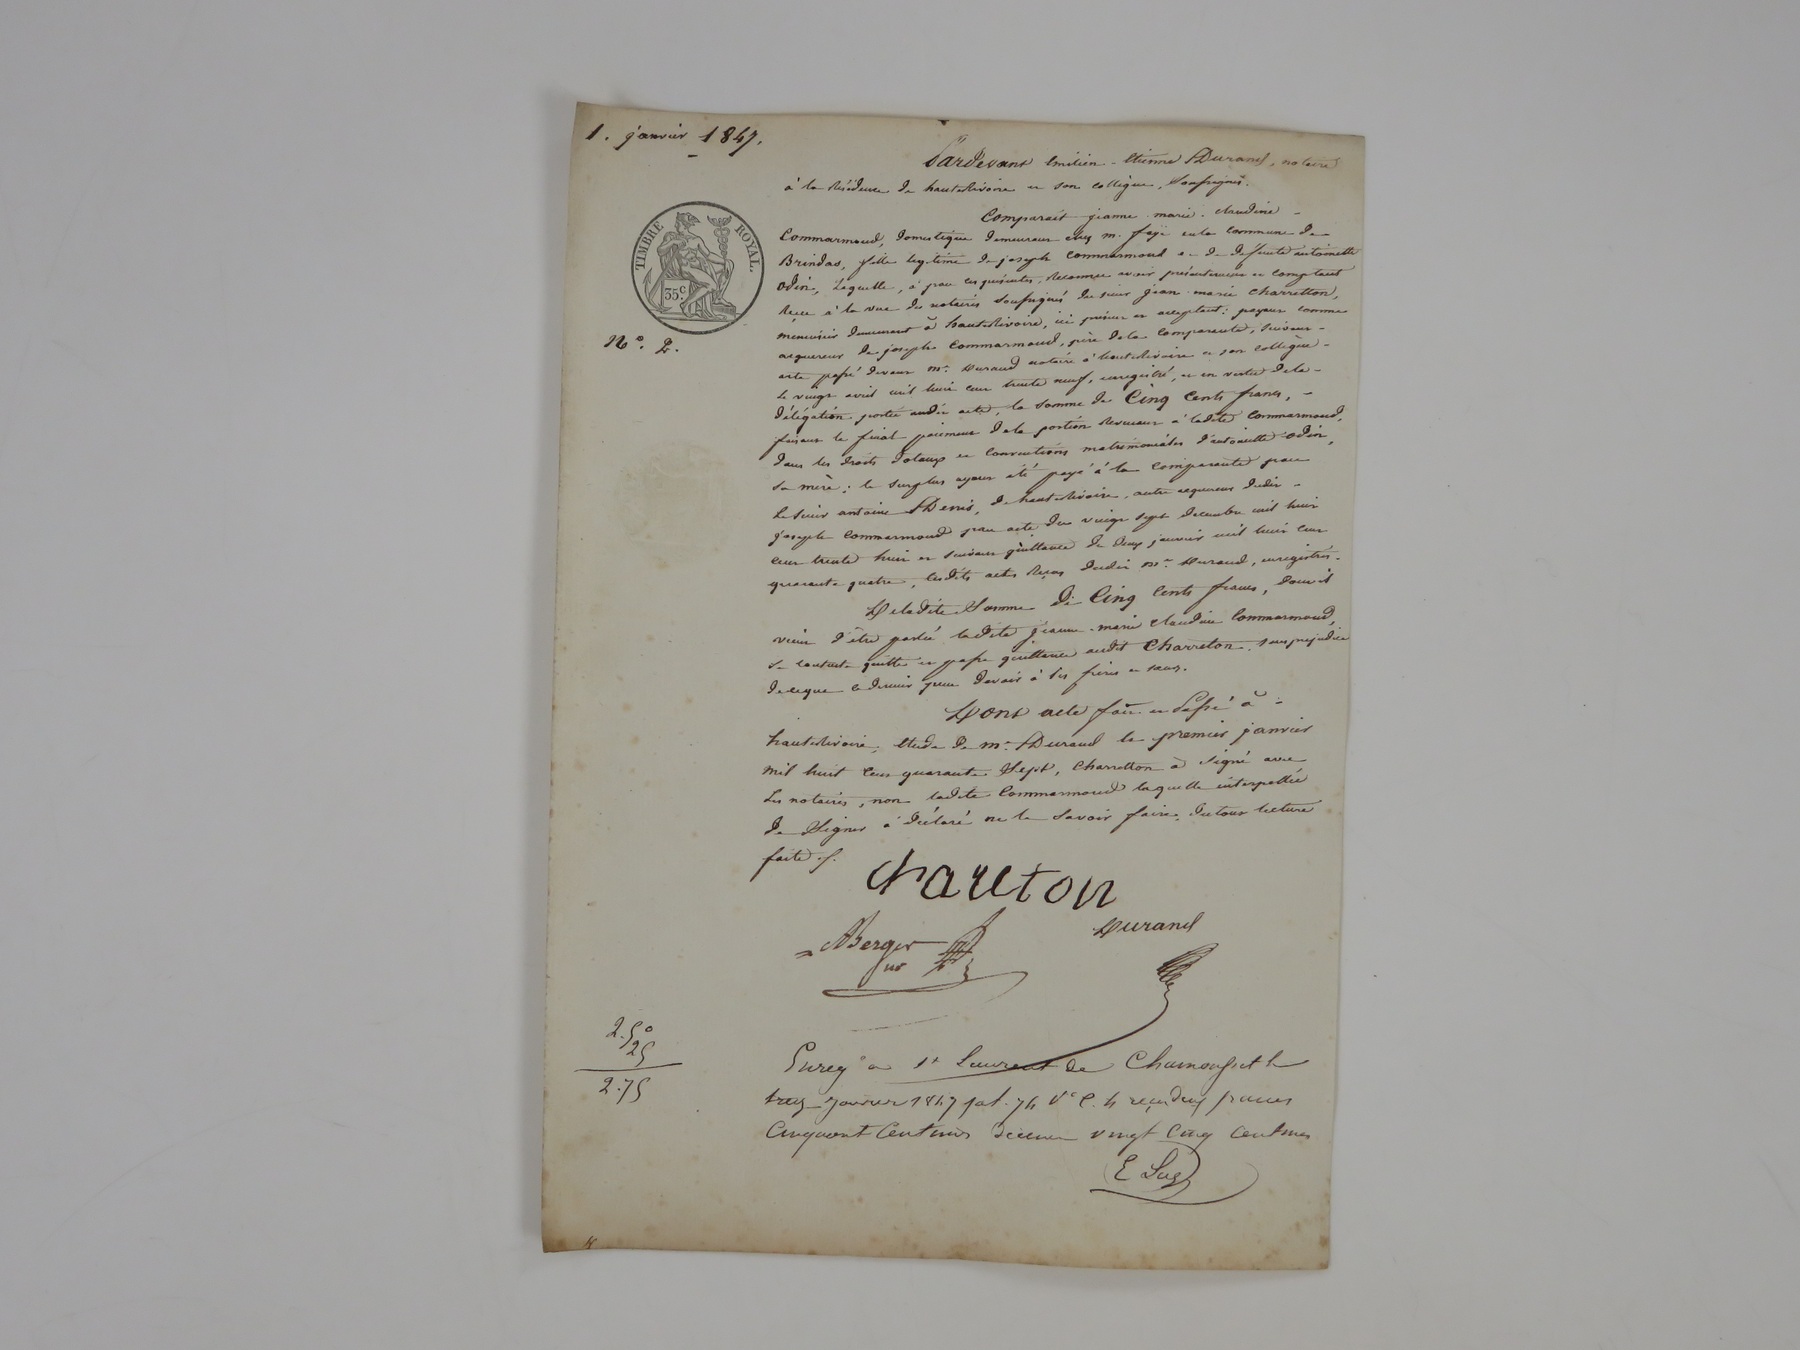 1. janvier 1847.
Pardevant Emilien-Etienne Durand, notaire
à la Résidence de hauterivoire et son collègue, Soussignés.
TIMBRE ROYAL.
35 c.
Comparaît jeanne-marie-claudine-
Commarmond, domestique demeurant chez m. faÿe en la commune de
Brindas, fille légitime de joseph Commarmond et de deffunte antoinette
Odin, Laquelle, à par ces présentes, Reconnu avoir présentement et comptant
Reçu à la vue des notaires soussignés du sieur jean-marie charretton,
menuisier demeurant à hauterivoire, ici présent et acceptant: payant comme
N.o 2.
acquereur de joseph Commarmond, père de la Comparante, suivant
acte passé devant me. Durand notaire à hauterivoire et son collègue
le vingt avril mil huit cent trente neuf, enregistré, et en vertu de la
délégation portée audit acte, la somme de Cinq Cents francs,
faisant le final paiement de la portion Revenant à ladite Commarmond,
dans les droits dotaux et conventions matrimoniales d'antoinette odin,
sa mère; le surplus ayant été payé à la comparante par
le sieur antoine Denis, de hauterivoire, autre acquereur dudit
joseph Commarmond par acte du vingt sept décembre mil huit
cent trente huit et suivant quittance du deux janvier mil huit cent
quarante quatre, lesdits actes Reçus dudit me. Durand, enregistrés.
De ladite Somme de Cinq Cents francs, dont il
vient d'être parlé ladite jeanne-marie claudine Commarmond,
se contente quitte et passe quittance audit Charreton, sans préjudice
de ce que ce dernier peut devoir à ses frères et sœurs.
Dont acte fait et Passé à
hauterivoire, Etude de me. Durand le premier janvier
mil huit Cent quarante Sept, Charretton a signé avec
Les notaires, non ladite Commarmond laquelle interpellée
de Signer a déclaré ne le savoir faire, du tout lecture
faite ./.
chareton
Berger
Durand
2.50
25
2.75
Enreg.é à St Laurent de Chamousset le
treize janvier 1847 fol. 74 V° C. 4 reçu deux francs
Cinquante Centimes décime vingt Cinq Centimes